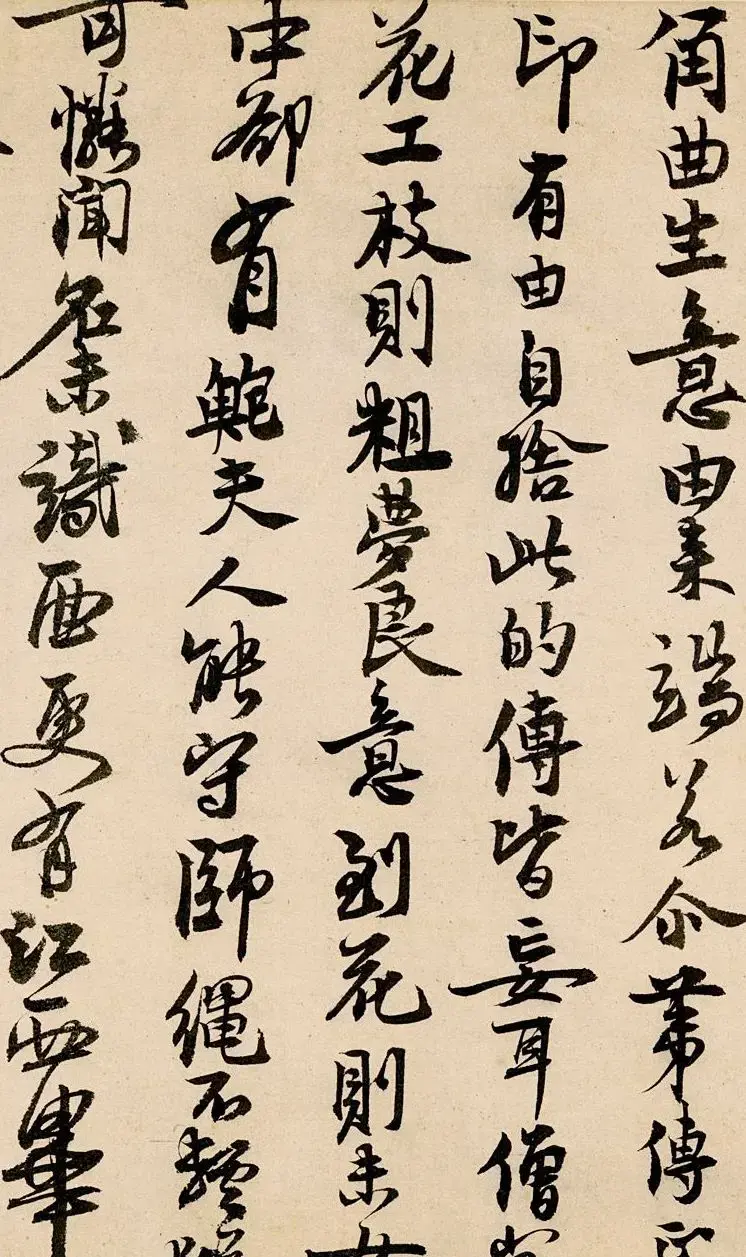 角曲生意由来端若尒苐傳
印有由自捨此的傳皆妄耳僧
花工枝則粗夢良意到花則未女
中卻有鮑夫人能守師繩不輕
可憐聞名未識面更有江西畢